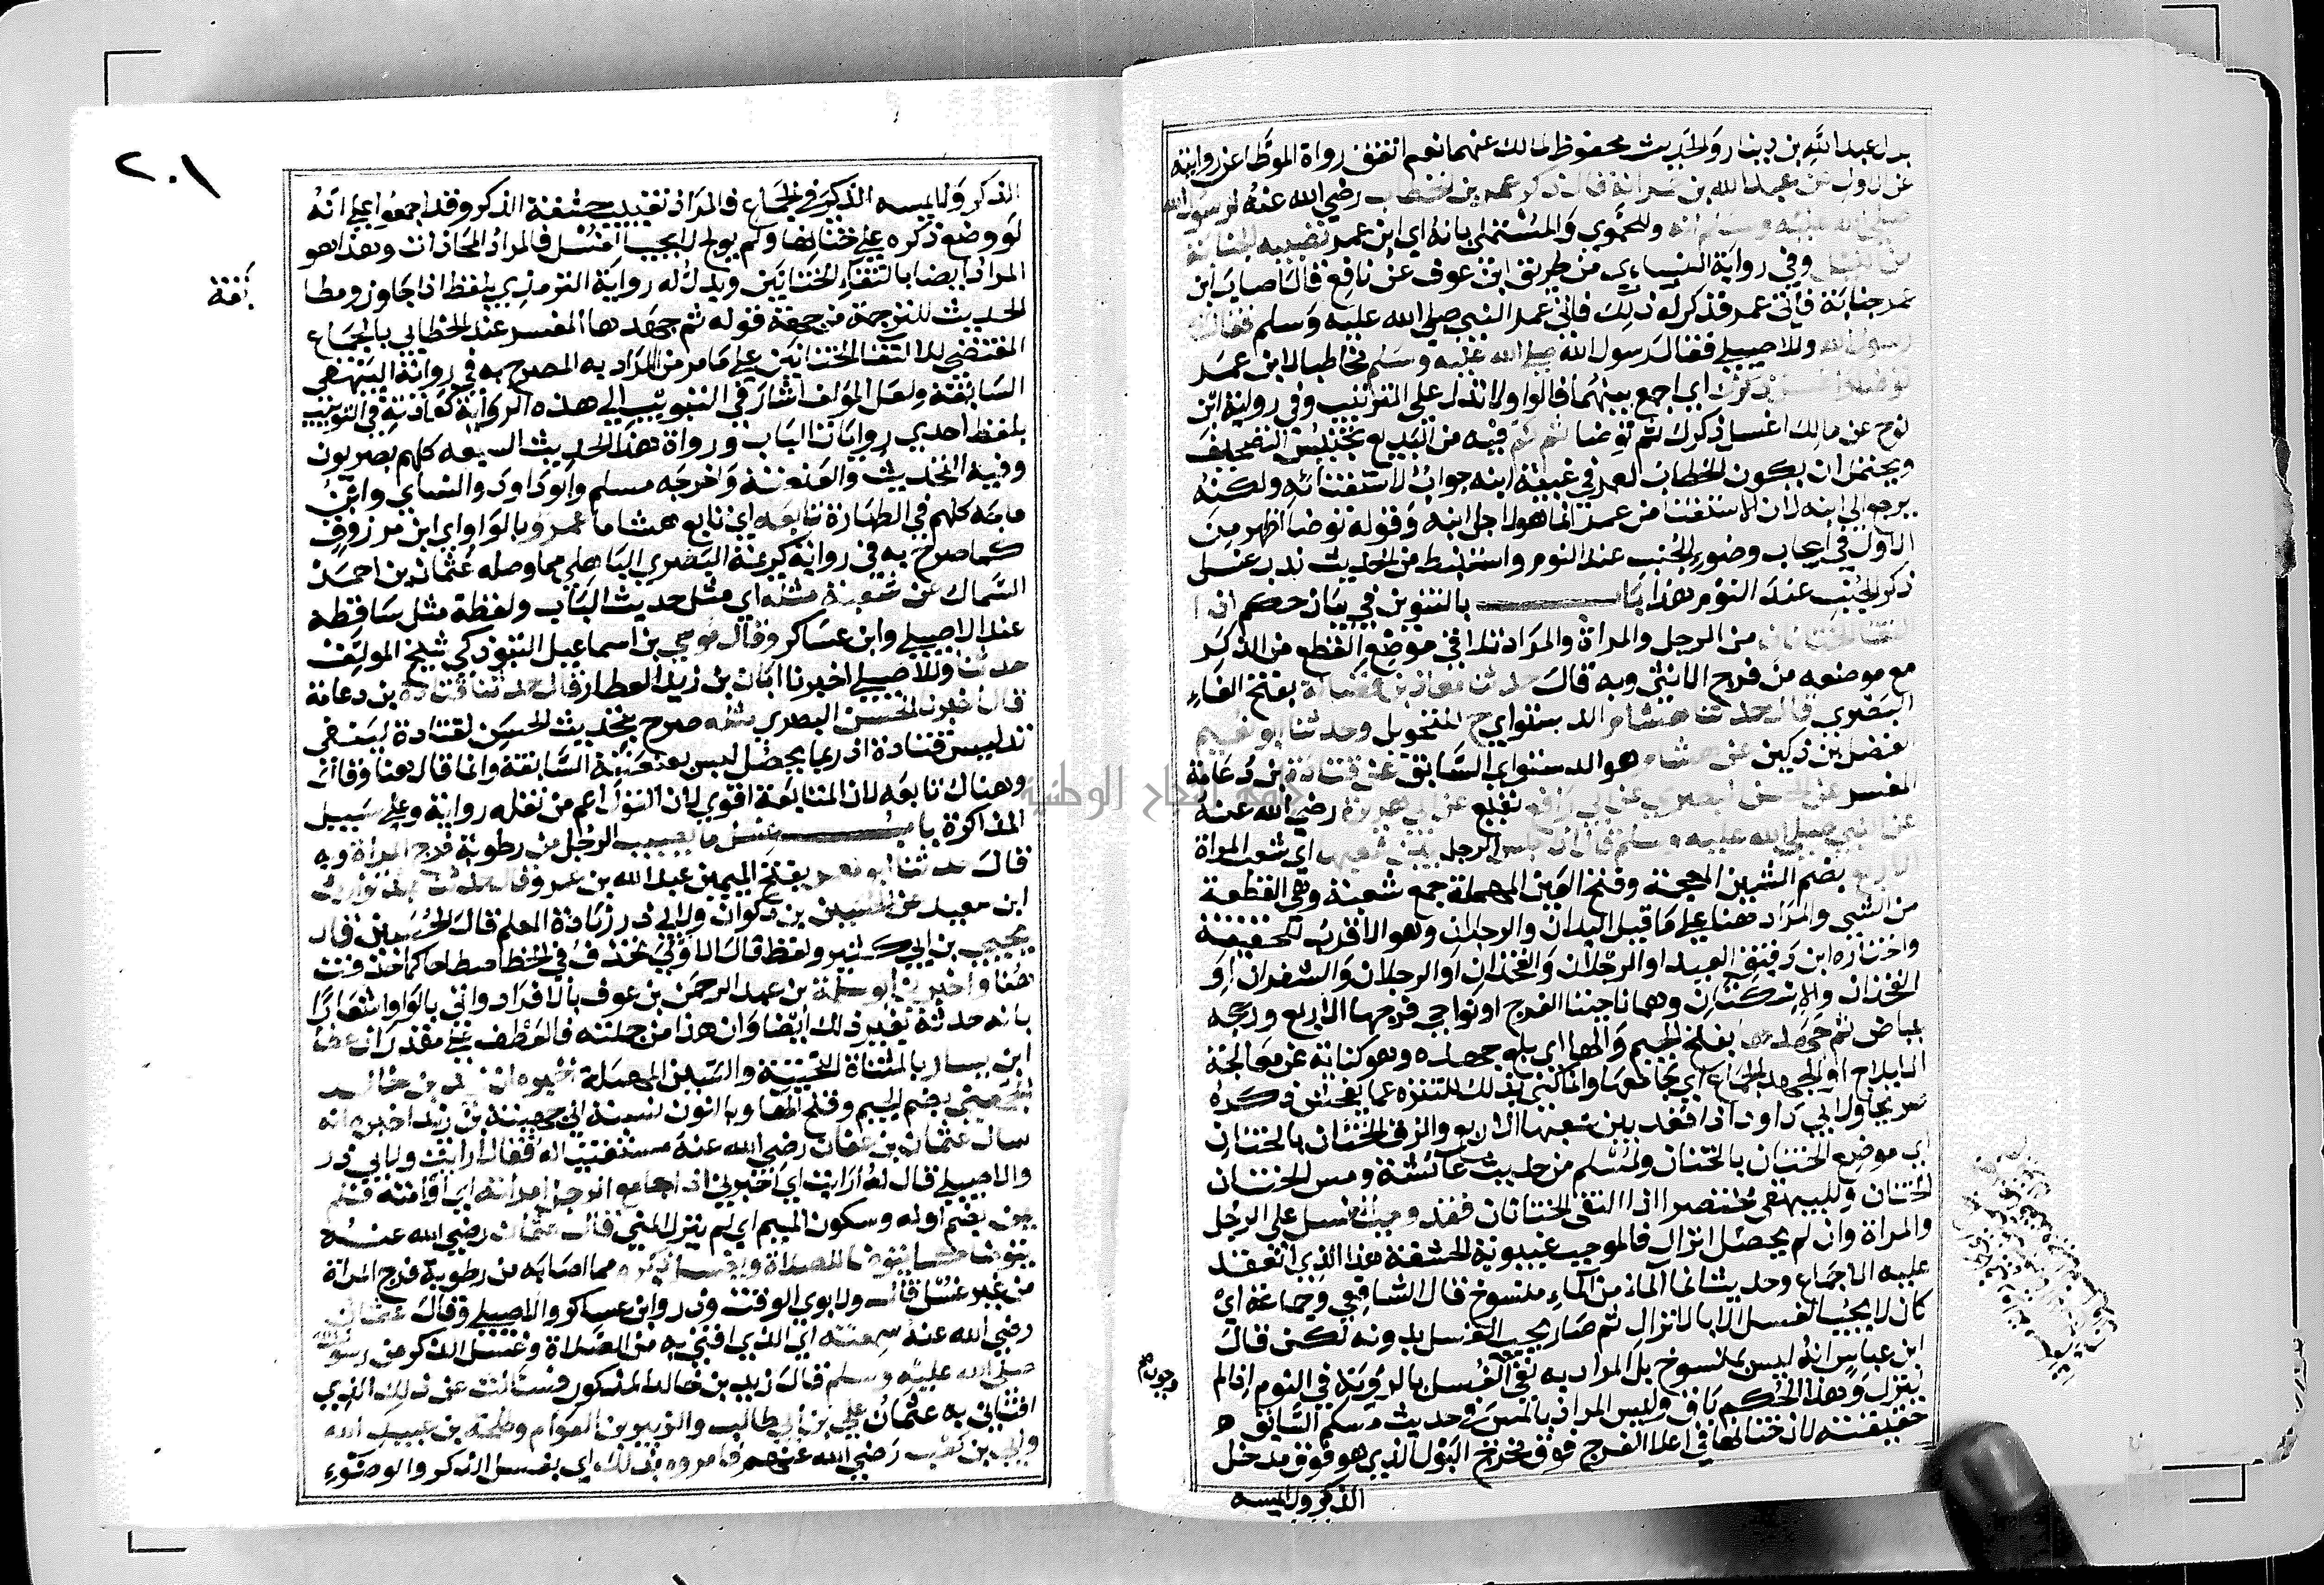 بدل عبد الله بن دينار والحديث محفوظ لمالك عنهما نعم اتفق رواة الموطا عن روايته
عن الاول عن عبد الله بن عمر انه قال ذكر عمر بن الخطاب رضي الله عنه لرسول الله
صلى الله عليه وسلم انه وللحموي والمستملي بانه اي ابن عمر تصيبه الجنابة
من الليل وفي رواية النسائي من طريق ابن عوف عن نافع قال اصاب ابن
عمر جنابة فاتى عمر فذكر له ذلك فاتى عمر النبي صلى الله عليه وسلم فقال له
رسول الله وللاصيلي فقال رسول الله صلى الله عليه وسلم مخاطبا لابن عمر
توضا واغسل ذكرك اي اجمع بينهما فالواو لا تدل على الترتيب وفي رواية ابن
نوح عن مالك اغسل ذكرك ثم توضا ثم نم فيه من البديع تجنيس التصحيف
ويحتمل ان يكون الخطاب لعمر في غيبة ابنه جواب لاستفتائه ولكنه
يرجع الى ابنه لان الاستفتا من عمر انما هو لاجل ابنه وقوله توضا اظهر من
الاول في ايجاب وضوء الجنب عند النوم واستنبط من الحديث ندب غسل
ذكر الجنب عند النوم هذا باب بالتنوين في بيان حكم اذا
التقا الختانان من الرجل والمراة والمراد تلاقي موضع القطع من الذكر
مع موضعه من فرج الانثى وبه قال حدثنا معاذ بن فضالة بفتح الفاء
البصري قال حدثنا هشام الدستواي ح للتحويل وحدثنا ابو نعيم
الفضل بن دكين عن هشام هو الدستواي السابق عن قتادة بن دعامة
المفسر عن الحسن البصري عن ابي رافع نفيع عن ابي هريرة رضي الله عنه
عن النبي صلى الله عليه وسلم قال اذا جلس الرجل بين شعبها اي شعب المراة
الاربع بضم الشين المعجمة وفتح العين المهملة جمع شعبة وهي القطعة
من الشي والمراد هنا على ما قيل اليدان والرجلان وهو الاقرب للحقيقة
واختاره ابن دقيق العيد او الرجلان والفخذان او الرجلان والشفران او
الفخذان والاسكتان وهما ناحيتا الفرج او نواحي فرجها الاربع ورجحه
عياض ثم جهدها بفتح الجيم والها اي بلغ جهده وهو كناية عن معالجة
الايلاج او الجهد الجماع اي جامعها وانما كنى بذلك للتنزه عما يفحش ذكره
صريحا ولابي داود اذا قعد بين شعبها الاربع والزق الختان بالختان
اي موضع الختان بالختان ولمسلم من حديث عائشة ومس الختان
الختان وللبيهقي مختصرا اذا التقى الختانان فقد وجب الغسل على الرجل
والمراة وان لم يحصل انزال فالموجب غيبوبة الحشفة هذا الذي انعقد
عليه الاجماع وحديث انما الماء من الماء منسوخ قال الشافعي وجماعة اي
كان لا يجب الغسل الا بالانزال ثم صار يجب الغسل بدونه لكن قال
ابن عباس انه ليس بمنسوخ بل المراد به نفي الغسل بالرؤية في النوم اذا لم
ينزل وهذا الحكم باق وليس المراد بالمس في حديث مسلم السابق
حقيقته لان ختانها في اعلا الفرج فوق مخرج البول الذي هو فوق مدخل
الذكر ولا يمسه
وجوب
٢٠١
الذكر ولا يمسه الذكر في الجماع فالمراد تغييب حشفة الذكر وقد اجمعوا على انه
لو وضع ذكره على ختانها ولم يولج لا يجب الغسل فالمراد المحاذات وهذا هو
المراد ايضا بالتقاء الختانين ويدل له رواية الترمذي بلفظ اذا جاوز ومطا
بقة
الحديث للترجمة من جهة قوله ثم جهدها المفسر عند الخطابي بالجماع
المقتضي لالتقا الختانين على ما مر من المراد به المصرح به في رواية البيهقي
السابقة ولعل المؤلف اشار في التبويب الى هذه الرواية كعادته في التبويب
بلفظ احدي روايات الباب ورواة هذا الحديث السبعه كلهم بصريون
وفيه التحديث والعنعنة واخرجه مسلم وابو داود والنساي وابن
ماجه كلهم في الطهارة تابعه اي تابع هشاما عمرو بالواو اي ابن مرزوق
كما صرح به في رواية كريمة البصري الباهلي مما وصله عثمان بن احمد
السماك عن شعبة مثله اي مثل حديث الباب ولفظة مثل ساقطة
عند الاصيلي وابن عساكر وقال موسى بن اسماعيل التبوذكي شيخ المولف
حدثنا وللاصيلي اخبرنا ابان بن زيد العطار قال حدثنا قتادة بن دعامة
قال اخبرنا الحسن البصري مثله صرح بتحديث الحسن لقتادة لينفي
تدليس قتادة اذ ربما يحصل لبس بعنعنته السابقة وانما قال هنا وقال
وهناك تابعه لان المتابعة اقوي لان القول اعم من نقله رواية وعلى سبيل
المذاكرة باب غسل ما يصيب الرجل من رطوبة فرج المراة وبه
قال حدثنا ابو معمر بفتح الميمين عبد الله بن عمرو قال حدثنا عبد الوارث
ابن سعيد عن الحسين بن ذكوان ولابي ذر زيادة المعلم قال الحسين قال
يحيى بن ابي كثير ولفظ قال الاولى تحذف في الخط اصطلاحا كما حذفت
هنا واخبرني ابو سلمة بن عبد الرحمن بن عوف بالافراد واتى بالواو اشعارا
بانه حدثه بغير ذلك ايضا وان هذا من جملته فالعطف على مقدر ان عطا
ابن يسار بالمثناة التحتية والسين المهملة اخبره ان زيد بن خالد
الجهني بضم الجيم وفتح الها وبالنون نسبة الى جهينة بن زيد اخبره انه
سال عثمان بن عفان رضي الله عنه مستفتيا له فقال ارايت ولابي ذر
والاصيلي قال له ارايت اي اخبرني اذا جامع الرجل امراته اي او امته فلم
يمن بضم اوله وسكون الميم اي لم ينزل المني قال عثمان رضي الله عنه
يتوضا كما يتوضا للصلاة ويغسل ذكره مما اصابه من رطوبة فرج المراة
من غير غسل قال ولابوي الوقت وذر وابن عساكر والاصيلي وقال عثمان
رضي الله عنه سمعته اي الذي افتى به من الصلاة وغسل الذكر من رسول الله
صلى الله عليه وسلم قال زيد بن خالد المذكور فسالت عن ذلك الذي
افتاني به عثمان علي بن ابي طالب والزبير بن العوام وطلحة بن عبيد الله
وابي بن كعب رضي الله عنهم فامروه بذلك اي بغسل الذكر والوضوء
جامعة النجاح الوطنية